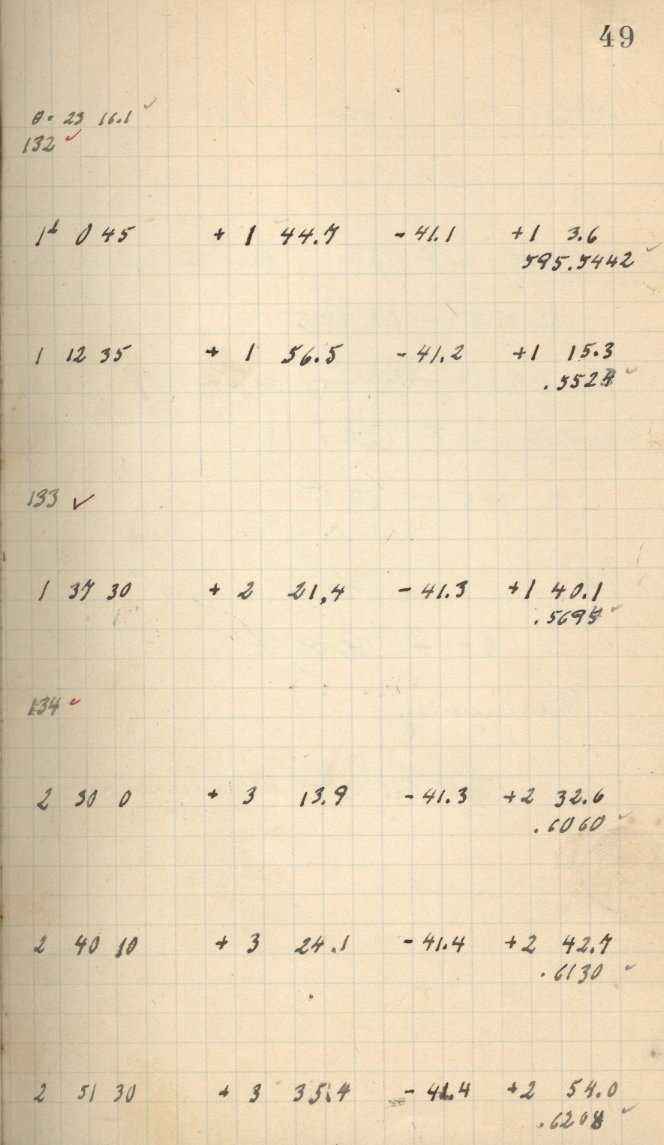 49
θ = 23 16.1 ✓
132 ✓
1h 0 45 + 1 44.7 - 41.1 + 1 3.6
595.5442 ✓
1 12 35 + 1 56.5 - 41.2 + 1 15.3
.5524 ✓
133 ✓
1 37 30 + 2 21.4 - 41.3 + 1 40.1
.5695 ✓
134 ✓
2 30 0 + 3 13.9 - 41.3 + 2 32.6
.6060 ✓
2 40 10 + 3 24.1 - 41.4 + 2 42.7
.6130 ✓
2 51 30 + 3 35.4 - 41.4 + 2 54.0
.6208 ✓